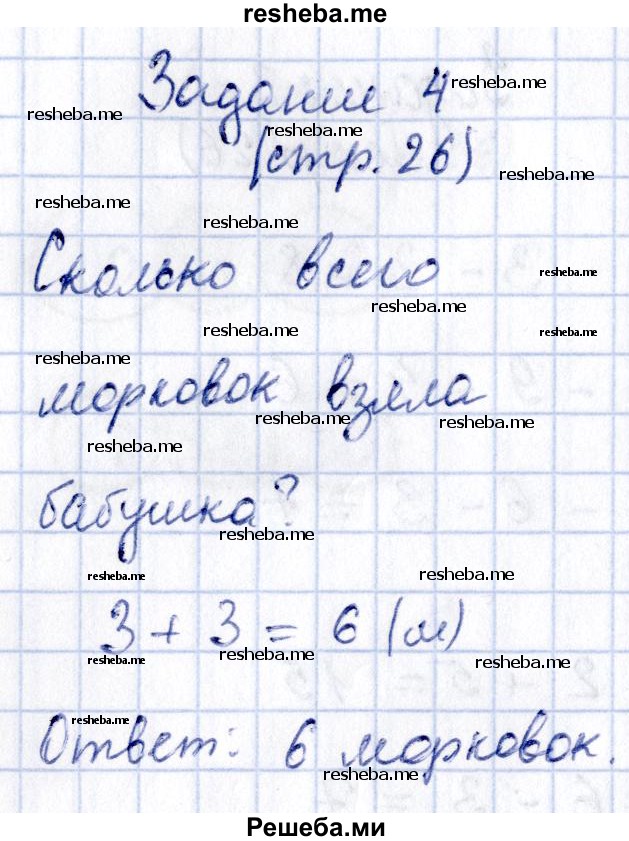 resheba.me
Задание 4
resheba.me
resheba.me
resheba.me
(стр. 26)
resheba.me
resheba.me
resheba.me
Сколько всего
resheba.me
resheba.me
resheba.me
resheba.me
resheba.me
морковок взяла
resheba.me
resheba.me
resheba.me
бабушка?
resheba.me
resheba.me
resheba.me
3 + 3 = 6 (м)
resheba.me
resheba.me
resheba.me
resheba.me
Ответ: 6 морковок.
resheba.me
Решеба.ми